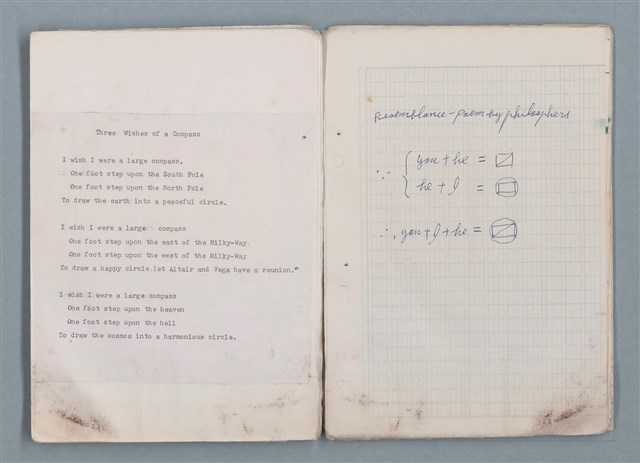 Three Wishes of a Compass
I wish I were a large compass.
One foot step upon the South Pole
One foot step upon the North Pole
To draw the earth into a peaceful circle.
I wish I were a large compass
One foot step upon the east of the Milky-Way.
One foot step upon the west of the Milky-Way
To draw a happy circle let Altair and Vega have a reunion."
I wish I were a large compass
One foot step upon the heaven
One foot step upon the hall
To draw the cosmos into a harmonious circle.
Resemblance-Poem by philosophers
∵ { you + he =
he + I =
∴, you + I + he =